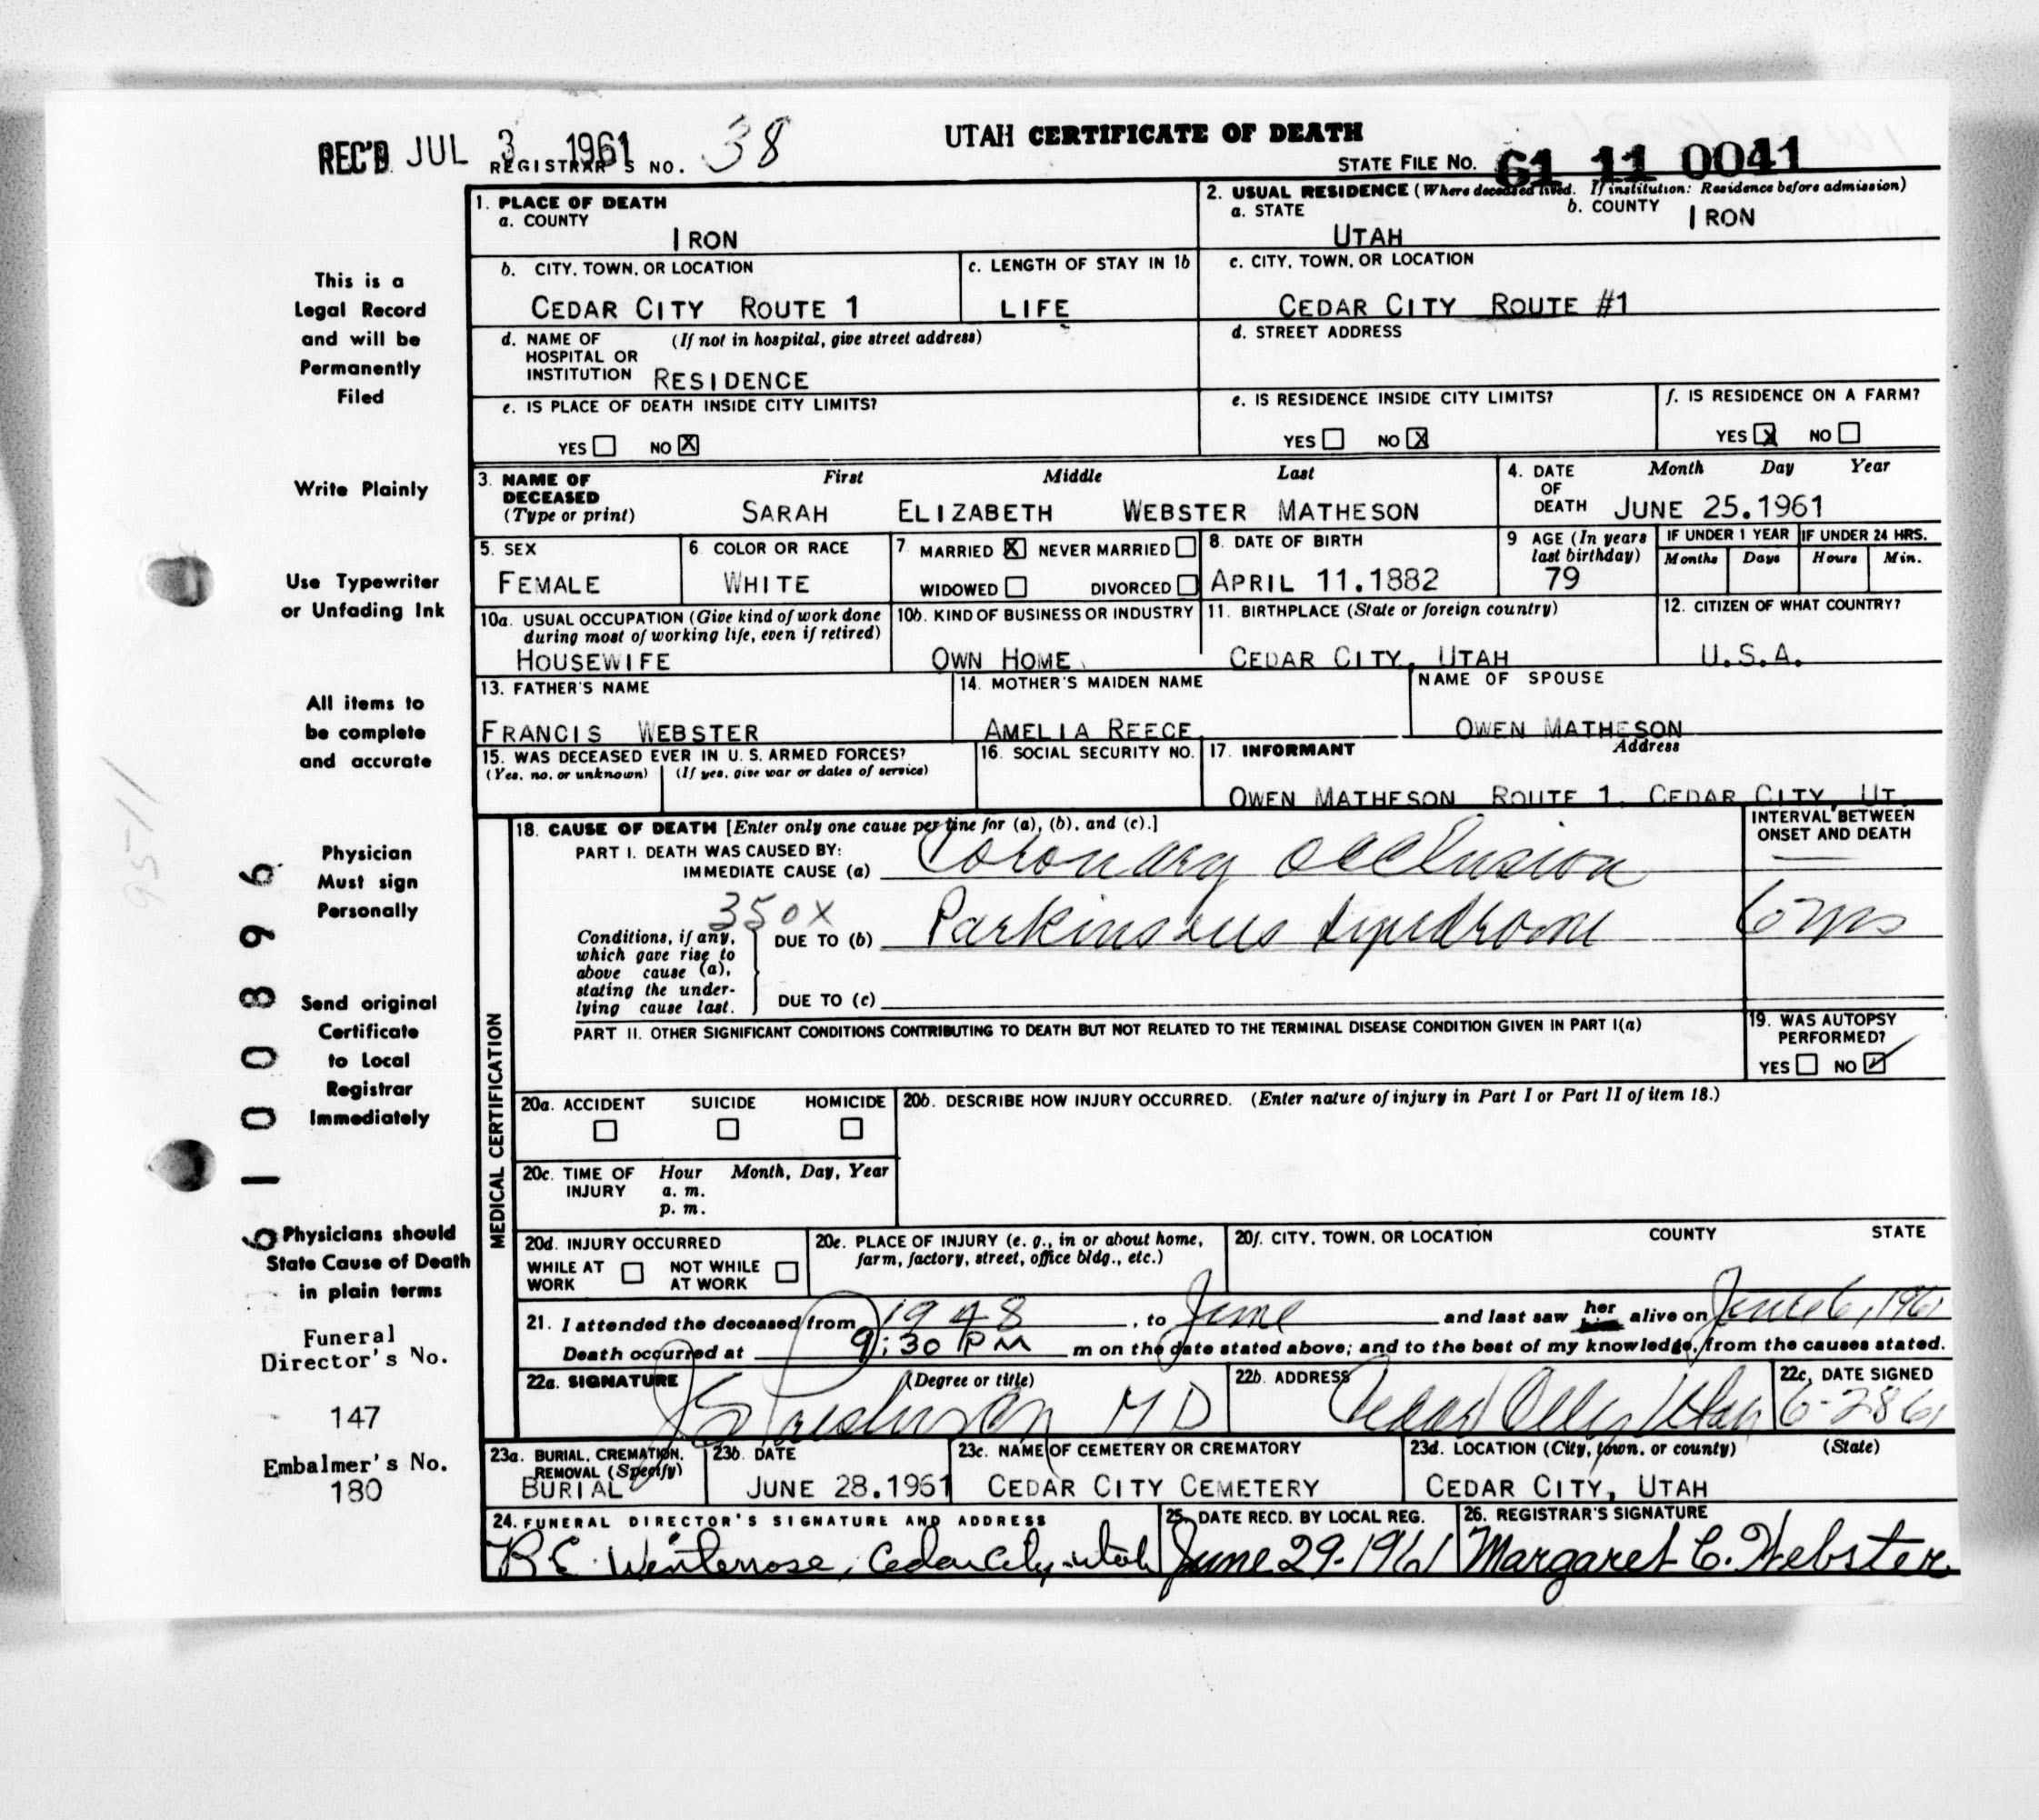 UTAH CERTIFICATE OF DEATH
REC'D JUL 3 1961 REGISTRAR'S NO. 38
STATE FILE NO. 61 11 0041
1. PLACE OF DEATH
a. COUNTY
IRON
2. USUAL RESIDENCE (Where deceased lived. If institution: Residence before admission)
a. STATE
UTAH
b. COUNTY
IRON
b. CITY, TOWN, OR LOCATION
CEDAR CITY ROUTE 1
c. LENGTH OF STAY IN 1b
LIFE
c. CITY, TOWN, OR LOCATION
CEDAR CITY ROUTE #1
d. NAME OF HOSPITAL OR INSTITUTION (If not in hospital, give street address)
RESIDENCE
d. STREET ADDRESS
e. IS PLACE OF DEATH INSIDE CITY LIMITS?
YES NO X
e. IS RESIDENCE INSIDE CITY LIMITS?
YES NO X
f. IS RESIDENCE ON A FARM?
YES X NO
3. NAME OF DECEASED (Type or print)
First Middle Last
SARAH ELIZABETH WEBSTER MATHESON
4. DATE OF DEATH
Month Day Year
JUNE 25.1961
5. SEX
FEMALE
6 COLOR OR RACE
WHITE
7 MARRIED X NEVER MARRIED
WIDOWED DIVORCED
8. DATE OF BIRTH
APRIL 11.1882
9 AGE (In years last birthday)
79
IF UNDER 1 YEAR
Months Days
IF UNDER 24 HRS.
Hours Min.
10a. USUAL OCCUPATION (Give kind of work done during most of working life, even if retired)
HOUSEWIFE
10b. KIND OF BUSINESS OR INDUSTRY
OWN HOME
11. BIRTHPLACE (State or foreign country)
CEDAR CITY, UTAH
12. CITIZEN OF WHAT COUNTRY?
U.S.A.
13. FATHER'S NAME
FRANCIS WEBSTER
14. MOTHER'S MAIDEN NAME
AMELIA REECE
NAME OF SPOUSE
OWEN MATHESON
15. WAS DECEASED EVER IN U. S. ARMED FORCES?
(Yes, no, or unknown) (If yes, give war or dates of service)
16. SOCIAL SECURITY NO.
17. INFORMANT Address
OWEN MATHESON ROUTE 1 CEDAR CITY, UT
MEDICAL CERTIFICATION
18. CAUSE OF DEATH [Enter only one cause per line for (a), (b), and (c).]
PART I. DEATH WAS CAUSED BY:
IMMEDIATE CAUSE (a) Coronary occlusion
INTERVAL BETWEEN ONSET AND DEATH
350X
Conditions, if any, which gave rise to above cause (a), stating the underlying cause last.
DUE TO (b) Parkinsons syndrome 6 yrs
DUE TO (c)
PART II. OTHER SIGNIFICANT CONDITIONS CONTRIBUTING TO DEATH BUT NOT RELATED TO THE TERMINAL DISEASE CONDITION GIVEN IN PART I(a)
19. WAS AUTOPSY PERFORMED?
YES NO ✓
20a. ACCIDENT SUICIDE HOMICIDE
20b. DESCRIBE HOW INJURY OCCURRED. (Enter nature of injury in Part I or Part II of item 18.)
20c. TIME OF INJURY Hour Month, Day, Year
a. m.
p. m.
20d. INJURY OCCURRED
WHILE AT WORK NOT WHILE AT WORK
20e. PLACE OF INJURY (e. g., in or about home, farm, factory, street, office bldg., etc.)
20f. CITY, TOWN, OR LOCATION COUNTY STATE
21. I attended the deceased from 1948, to June and last saw her him alive on June 6, 1961
Death occurred at 9:30 PM m on the date stated above; and to the best of my knowledge, from the causes stated.
22a. SIGNATURE (Degree or title)
M D
22b. ADDRESS
Cedar City, Utah
22c. DATE SIGNED
6-28-61
23a. BURIAL, CREMATION, REMOVAL (Specify)
BURIAL
23b. DATE
JUNE 28.1961
23c. NAME OF CEMETERY OR CREMATORY
CEDAR CITY CEMETERY
23d. LOCATION (City, town, or county) (State)
CEDAR CITY, UTAH
24. FUNERAL DIRECTOR'S SIGNATURE AND ADDRESS
Cedar City, Utah
25. DATE RECD. BY LOCAL REG.
June 29-1961
26. REGISTRAR'S SIGNATURE
Margaret C. Webster
This is a
Legal Record
and will be
Permanently
Filed
Write Plainly
Use Typewriter
or Unfading Ink
All items to
be complete
and accurate
Physician
Must sign
Personally
Send original
Certificate
to Local
Registrar
Immediately
Physicians should
State Cause of Death
in plain terms
Funeral
Director's No.
147
Embalmer's No.
180
61 00896
95-11